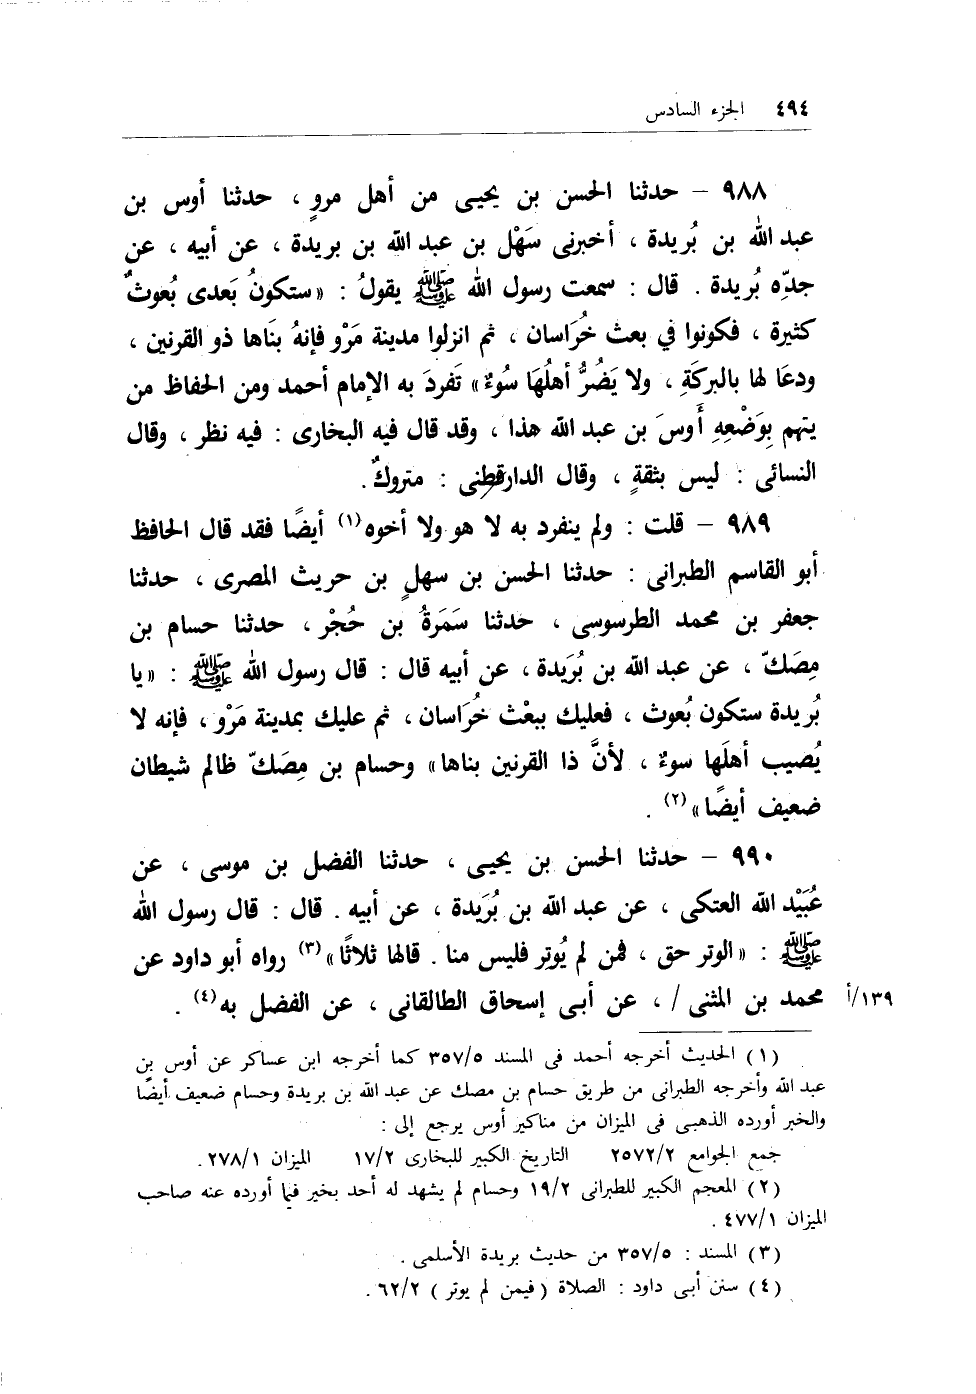 ٤٩٤ الجزء السادس
٩٨٨ – حدثنا الحسن بن يحيى من أهل مروٍ ، حدثنا أوس بن
عبد الله بن بُريدة ، أخبرنى سَهْل بن عبد الله بن بريدة ، عن أبيه ، عن
جدِّه بُريدة . قال : سمعت رسول الله ﷺ يقولُ : «ستكونُ بَعدى بُعوثٌ
كثيرة ، فكونوا في بعث خُرَاسان ، ثم انزلوا مدينة مَرْو فإنهُ بنَاها ذو القرنين ،
ودعَا لها بالبركَةِ ، ولا يَضُرُّ أهلُهَا سُوءٌ» تَفردَ به الإمام أحمد ومن الحفاظ من
يتهم بِوَضْعِهِ أَوسَ بن عبد الله هذا ، وقد قال فيه البخارى : فيه نظر ، وقال
النسائى : ليس بثقةٍ ، وقال الدارقطنى : متروكٌ .
٩٨٩ – قلت : ولم ينفرد به لا هو ولا أخوه(١) أيضًا فقد قال الحافظ
أبو القاسم الطبرانى : حدثنا الحسن بن سهلٍ بن حريث المصرى ، حدثنا
جعفر بن محمد الطرسوسى ، حدثنا سَمَرةُ بن حُجْر ، حدثنا حسام بن
مِصَكّ ، عن عبد الله بن بُرَيدة ، عن أبيه قال : قال رسول الله ﷺ : «يا
بُريدة ستكون بُعوث ، فعليك ببعْث خُرَاسان ، ثم عليك بمدينة مَرْو ، فإنه لا
يُصيب أهلَها سوءٌ ، لأنَّ ذا القرنين بناها» وحسام بن مِصَكّ ظالم شيطان
ضعيف أيضًا»(٢) .
٩٩٠ – حدثنا الحسن بن يحيى ، حدثنا الفضل بن موسى ، عن
عُبَيْد الله العتكى ، عن عبد الله بن بُرَيدة ، عن أبيه . قال : قال رسول الله
ﷺ : «الوتر حق ، فمن لم يُوتر فليس منا . قالها ثلاثًا»(٣) رواه أبو داود عن
محمد بن المثنى / ، عن أبى إسحاق الطالقانى ، عن الفضل به(٤) . ١٣٩/أ
(١) الحديث أخرجه أحمد فى المسند ٣٥٧/٥ كما أخرجه ابن عساكر عن أوس بن
عبد الله وأخرجه الطبرانى من طريق حسام بن مصك عن عبد الله بن بريدة وحسام ضعيف أيضًا
والخبر أورده الذهبى فى الميزان من مناكير أوس يرجع إلى :
جمع الجوامع ٢٥٧٢/٢ التاريخ الكبير للبخارى ١٧/٢ الميزان ٢٧٨/١ .
(٢) المعجم الكبير للطبرانى ١٩/٢ وحسام لم يشهد له أحد بخير فيما أورده عنه صاحب
الميزان ٤٧٧/١ .
(٣) المسند : ٣٥٧/٥ من حديث بريدة الأسلمى .
(٤) سنن أبى داود : الصلاة (فيمن لم يوتر) ٦٢/٢ .